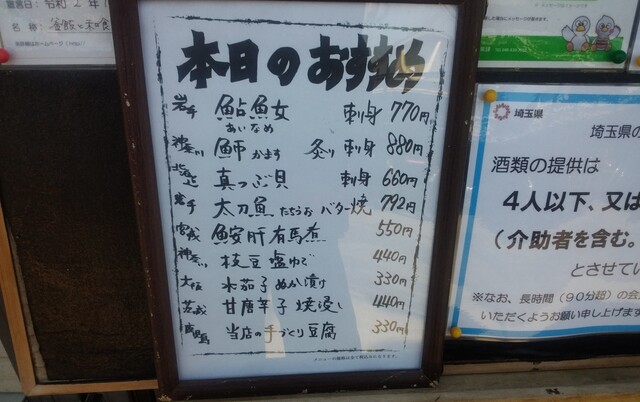 本日のおすすめ
岩手 鮎魚女 刺身 770円
あいなめ
神奈川 魳 かます 炙り 刺身 880円
北海道 真つぶ貝 刺身 660円
岩手 太刀魚 たちうお バター焼 792円
宮城 鮟肝有馬煮 550円
神奈川 枝豆塩ゆで 440円
大阪 水茄子ぬか漬け 330円
茨城 甘唐辛子焼浸し 440円
鹿児島 当店の手づくり豆腐 330円
埼玉県
埼玉県の
酒類の提供は
4人以下、又は
（介助者を含む。
とさせてい
※なお、長時間（90分超）の会
いただくようお願い申し上げます